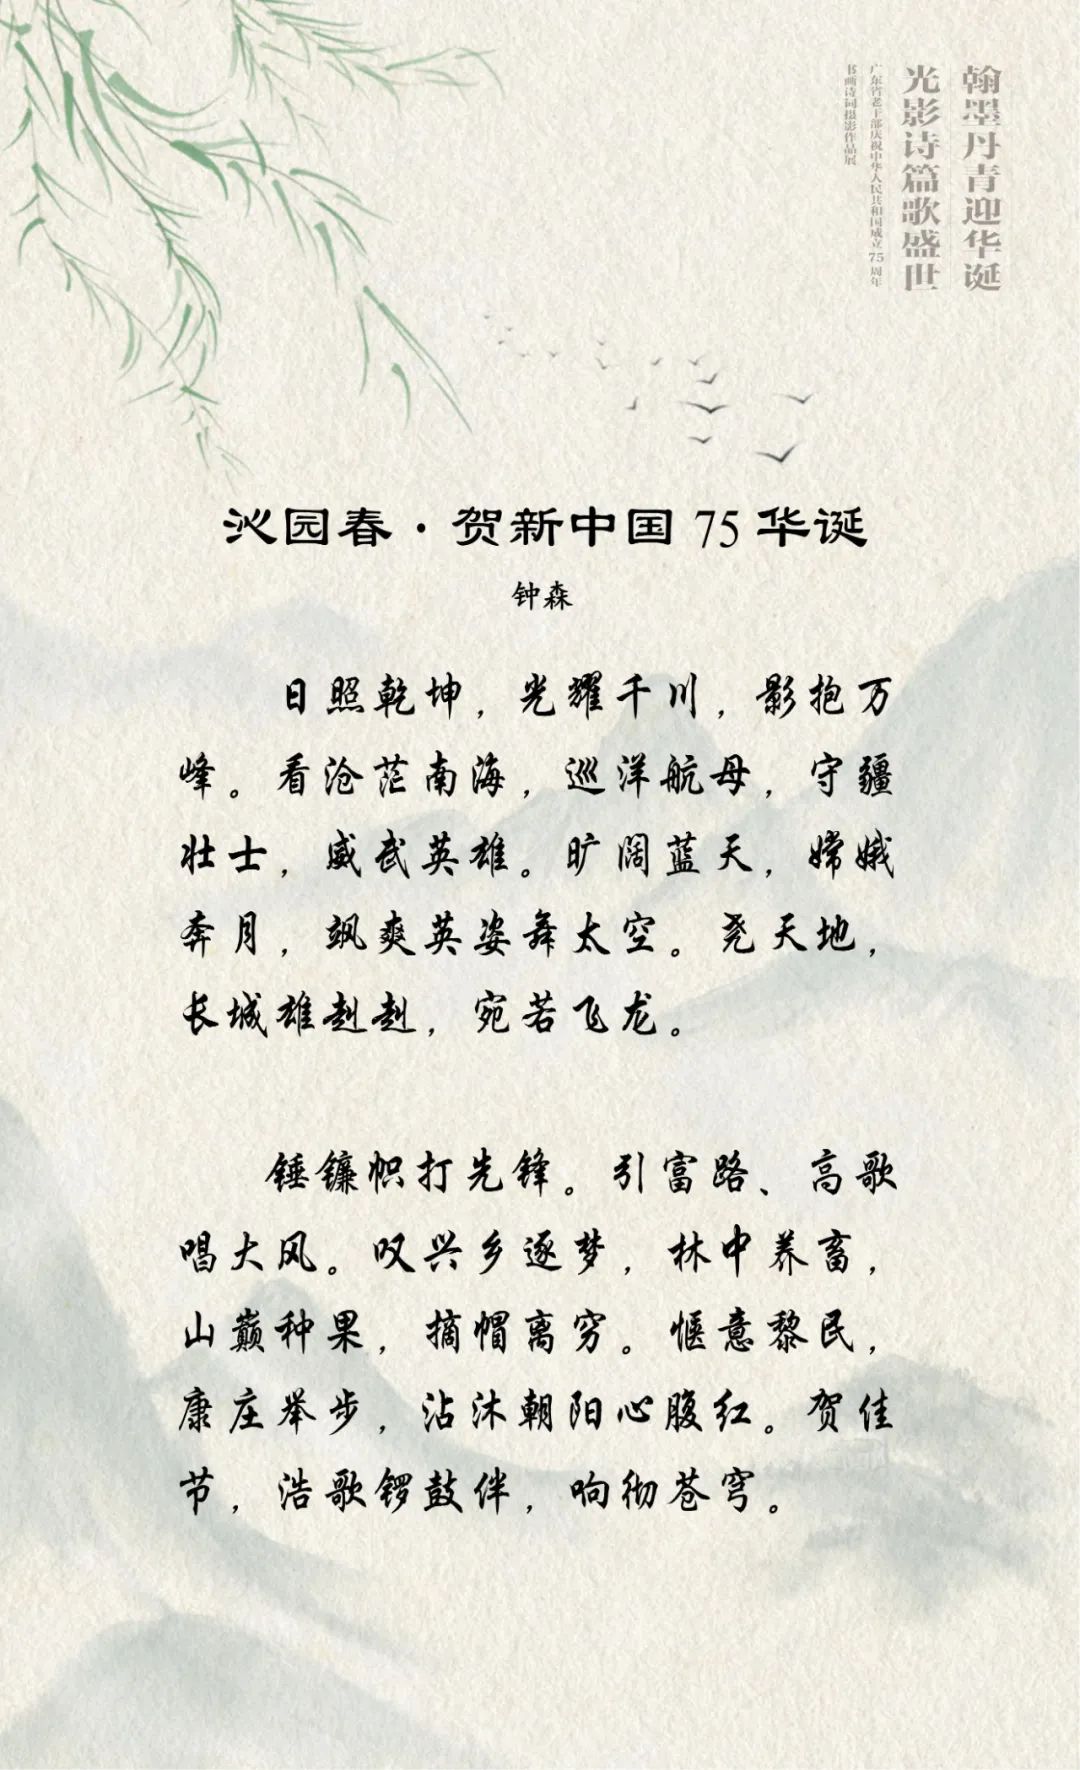 翰墨丹青迎华诞
光影诗篇歌盛世
广东省老干部庆祝中华人民共和国成立75周年
书画诗词摄影作品展
沁园春·贺新中国75华诞
钟森
日照乾坤，光耀千川，影抱万
峰。看沧茫南海，巡洋航母，守疆
壮士，威武英雄。旷阔蓝天，嫦娥
奔月，飒爽英姿舞太空。尧天地，
长城雄赳赳，宛若飞龙。
锤镰帜打先锋。引富路、高歌
唱大风。叹兴乡逐梦，林中养畜，
山巅种果，摘帽离穷。惬意黎民，
康庄举步，沾沐朝阳心腹红。贺佳
节，浩歌锣鼓伴，响彻苍穹。